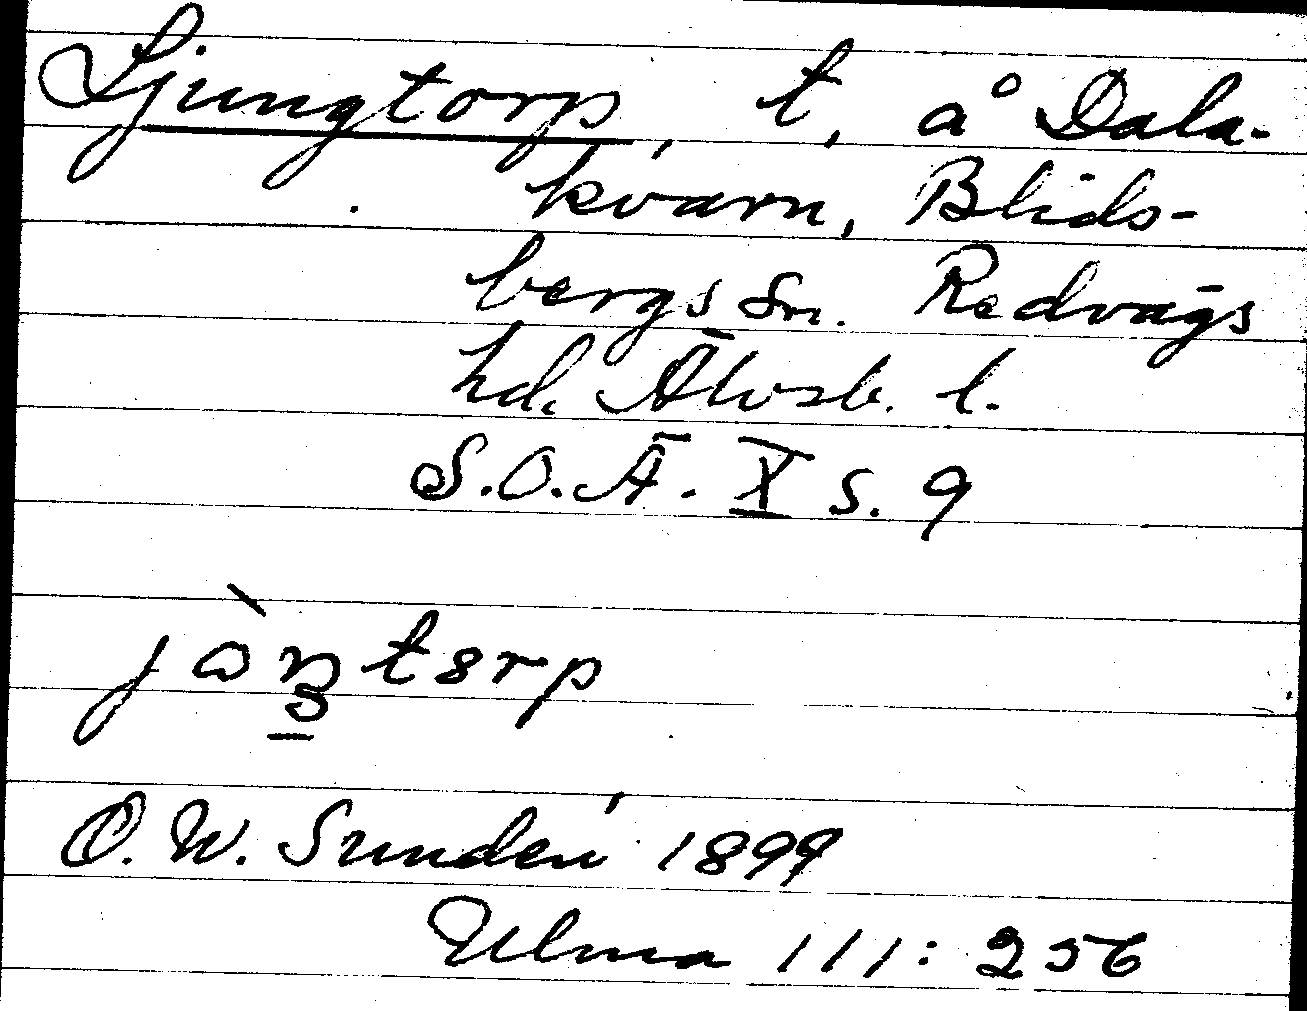 Ljungtorp, t, å Dala-
kvarn, Blids-
bergs sn. Redvägs
hd. Älvsb. l.
S.O.Ä. X s. 9
O. W. Sundén 1899
Ulma 111:256